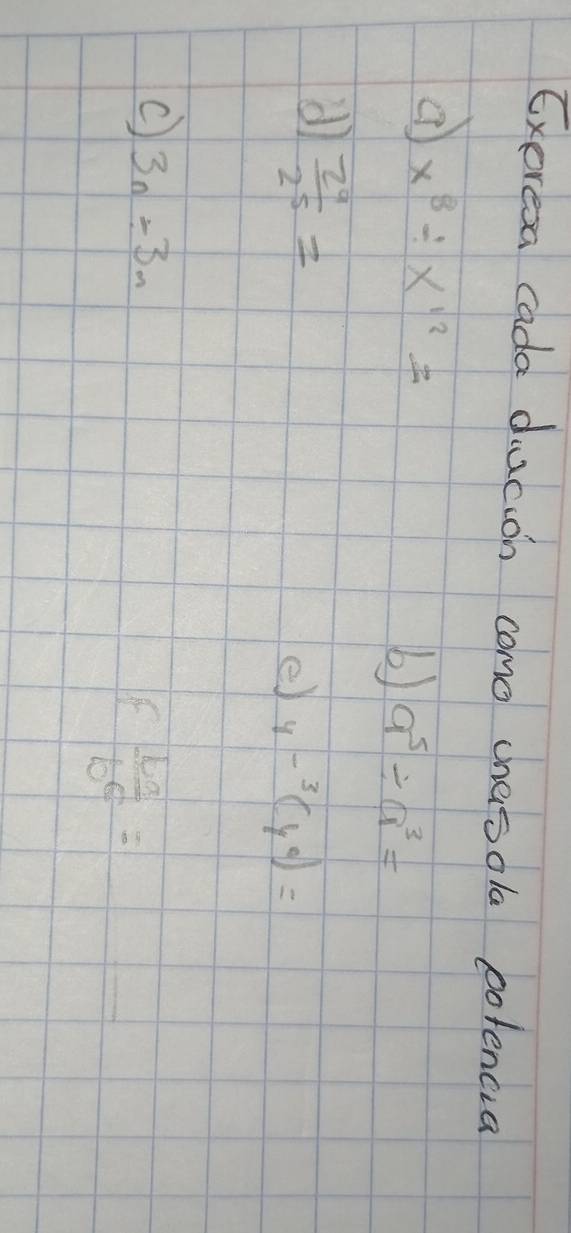 Expresa cada divición como una sola potencia
a) x⁸ ÷ x¹² = b) a⁵ ÷ a³ =
d) 2⁹/2⁵ = e) y-³(y⁹) =
c) 3n ÷ 3n f b⁹/b⁶ =